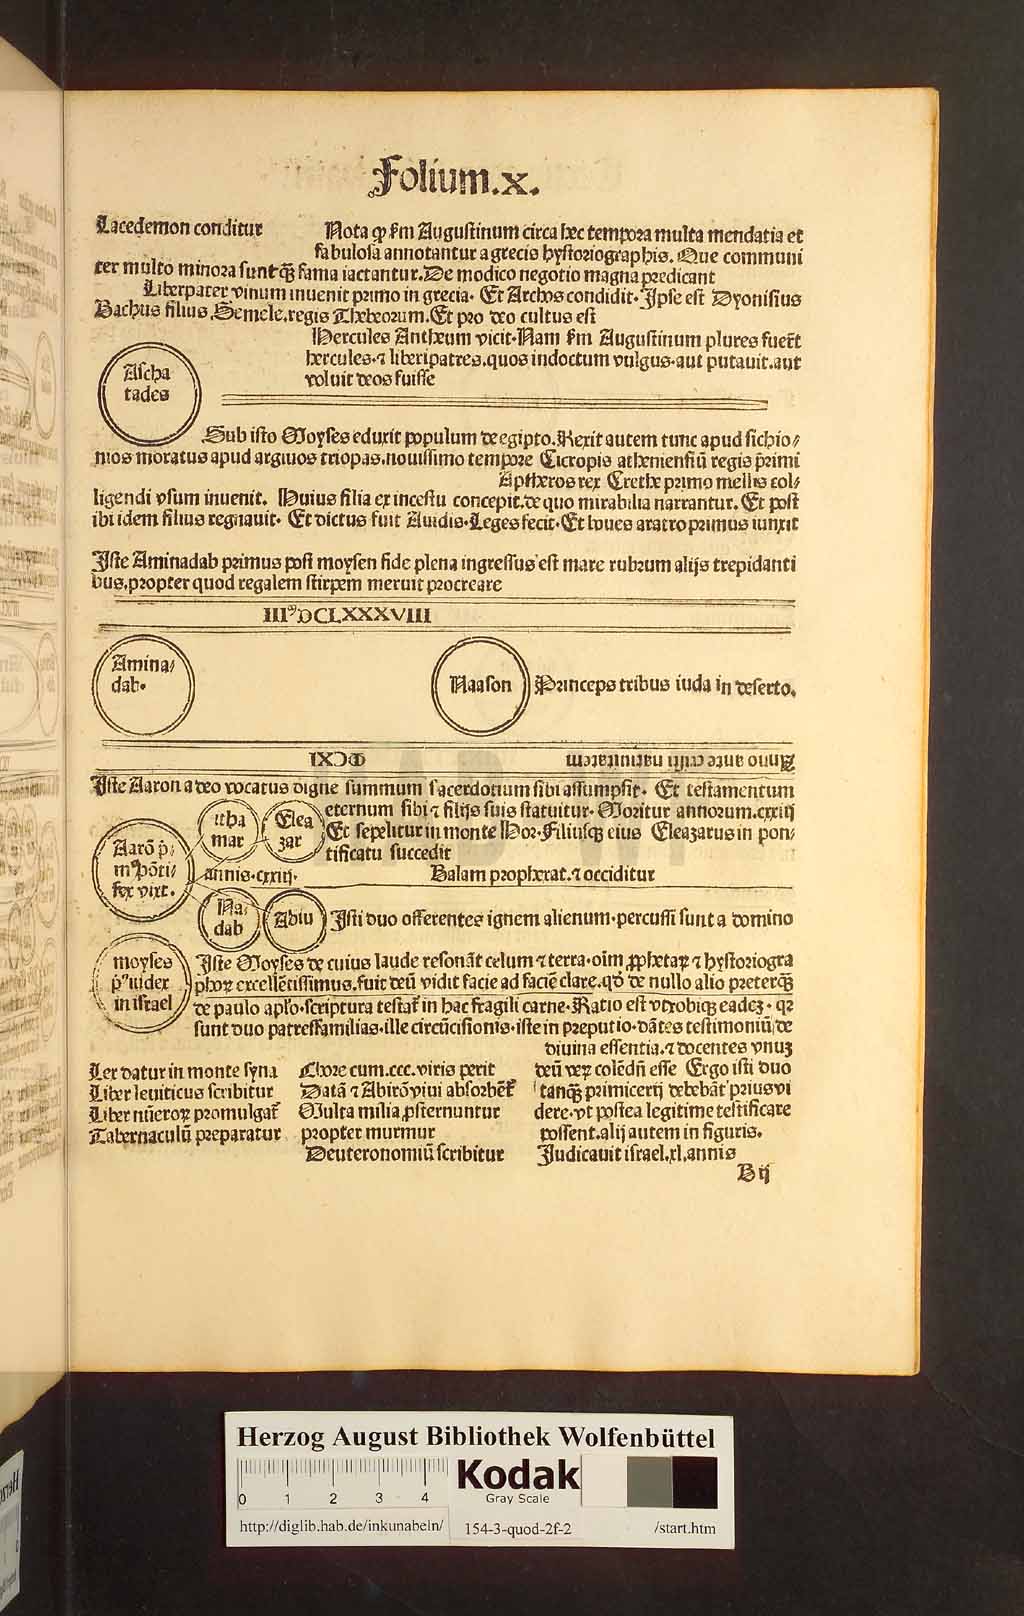 Folium.x.
Lacedemon conditur
Nota ꝙ ẜm Augustinum circa hec tempora multa mendatia et
fabulosa annotantur a grecis hystoriographis. Que communi
ter multo minora sunt qꝫ fama iactantur. De modico negotio magna predicant
Liberpater vinum inuenit primo in grecia. Et Archos condidit. Ipse est Dyonisius
Bachus filius. Semele. regis Thebeorum. Et pro deo cultus est
Hercules Antheum vicit. Nam ẜm Augustinum plures fuer̄t
hercules. ⁊ liberipatres. quos indoctum vulgus. aut putauit. aut
voluit deos fuisse
Ascha
tades
Sub isto Moyses eduxit populum de egipto. Rexit autem tunc apud sichio⸗
nios moratus apud argiuos triopas. nouissimo tempore Cicropis atheniensiū regis p̄rimi
Aptheros rex Crethe primo mellis col⸗
ligendi vsum inuenit. Huius filia ex incestu concepit. de quo mirabilia narrantur. Et post
ibi idem filius regnauit. Et dictus fuit Auidis. Leges fecit. Et boues aratro primus iunxit
Iste Aminadab primus post moysen fide plena ingressus est mare rubrum alijs trepidanti
bus. propter quod regalem stirpem meruit procreare
IIIꝰDCLXXXVIII
Amina⸗
dab.
Naason
Princeps tribus iuda in deserto.
Anno ante cristi natiuitatem
ↀCXI
Iste Aaron a deo vocatus digne summum sacerdotium sibi assumpsit. Et testamentum
eternum sibi ⁊ filijs suis statuitur. Moritur annorum. cxxiij
Et sepelitur in monte Hor. Filiusqꝫ eius Eleazarus in pon⸗
tificatu succedit
itha
mar
Elea
zar
Aarō p̄⸗
mꝰ pōti⸗
fex vixt.
annis. cxxiij.
Balam prophetat. ⁊ occiditur
Na⸗
dab
Abiu
Isti duo offerentes ignem alienum. percussi sunt a domino
moyses
pꝰ iudex
in israel
Iste Moyses de cuius laude resonāt celum ⁊ terra. oīm ꝓphetaꝝ ⁊ hystoriogra
phoꝝ excellētissimus. fuit deū vidit facie ad faciē clare. qd̄ de nullo alio preterqꝫ
de paulo apl̄o. scriptura testat̄ in hac fragili carne. Ratio est vtrobiqꝫ eadeꝫ. qꝛ
sunt duo patresfamilias. ille circūcisionis. iste in preputio. dātes testimoniū de
diuina essentia. ⁊ docentes vnuꝫ
deū veꝝ colēdn̄ esse Ergo isti duo
tanqꝫ primicerij debebāt prius vi
dere. vt postea legitime testificare
possent. alij autem in figuris.
Iudicauit israel. xl. annis
Lex datur in monte syna
Liber leuiticus scribitur
Liber nūeroꝝ promulgat̄
Tabernaculū preparatur
Chore cum. ccc. viris perit
Datā ⁊ Abirō viui absorbēt̄
Multa milia ꝓsternuntur
propter murmur
Deuteronomiū scribitur
B ij
Herzog August Bibliothek Wolfenbüttel
0 1 2 3 4
Kodak
Gray Scale
http://diglib.hab.de/inkunabeln/
154-3-quod-2f-2
/start.htm
HAB WF